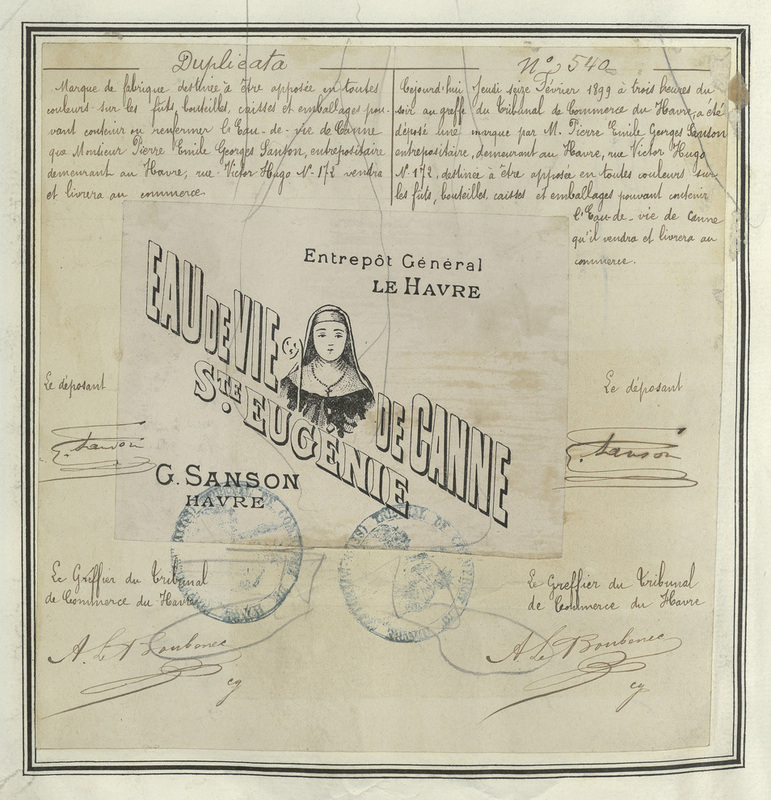 Duplicata
Marque de fabrique destinée à être apposée en toutes
couleurs sur les fûts, bouteilles, caisses et emballages pou-
vant contenir ou renfermer l'Eau-de-vie de Canne
que Monsieur Pierre Emile Georges Sanson, entrepositaire
demeurant au Havre, rue Victor Hugo N° 172 vendra
et livrera au commerce.
N° 540
Cejourd'hui Jeudi seize Février 1899 à trois heures du
soir au greffe du Tribunal de Commerce du Havre, a été
déposé une marque par M. Pierre Emile Georges Sanson
entrepositaire, demeurant au Havre, rue Victor Hugo
N° 172, destinée à être apposée en toutes couleurs sur
les fûts, bouteilles, caisses et emballages pouvant contenir
l'Eau-de-vie de canne
qu'il vendra et livrera au
commerce.
Entrepôt Général
LE HAVRE
EAU DE VIE DE CANNE
STE EUGÉNIE
G. SANSON
HAVRE
Le déposant
G. Sanson
Le déposant
G. Sanson
Le Greffier du Tribunal
de Commerce du Havre
A. Le Boubenec
Le Greffier du Tribunal
de Commerce du Havre
A. Le Boubenec
cg
cg